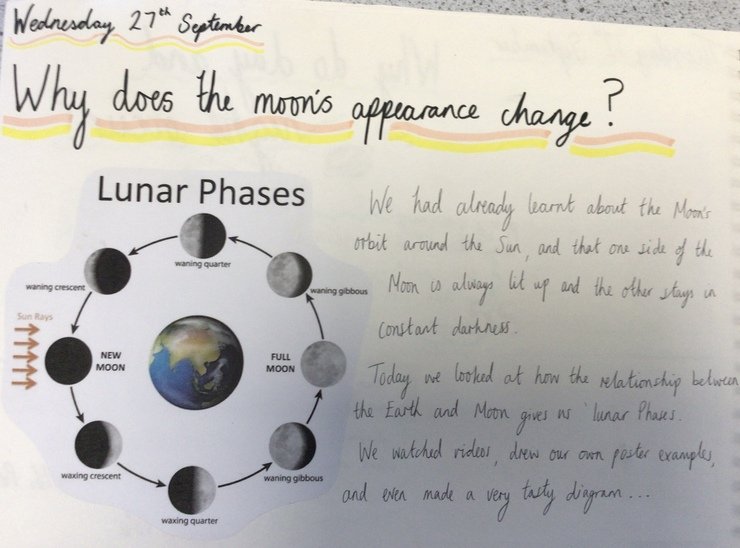 Wednesday 27th September
Why does the moon's appearance change?
Lunar Phases
waning quarter
waning crescent
waning gibbous
Sun Rays
NEW
MOON
FULL
MOON
waxing crescent
waning gibbous
waxing quarter
We had already learnt about the Moon's
orbit around the Sun, and that one side of the
Moon is always lit up and the other stays in
constant darkness.
Today we looked at how the relationship between
the Earth and Moon gives us 'lunar Phases.
We watched videos, drew our own poster examples,
and even made a very tasty diagram...